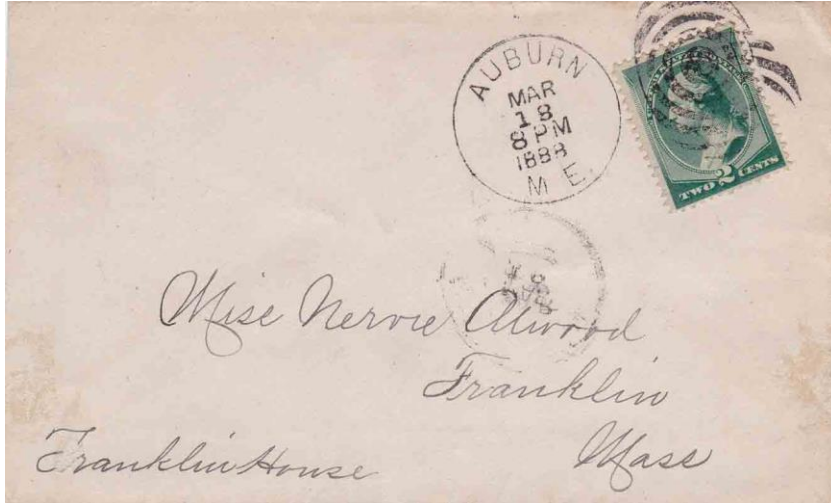 AUBURN
MAR
18
8 PM
1888
ME.
TWO 2 CENTS
Miss Nervie Atwood
Franklin
Mass
Franklin House